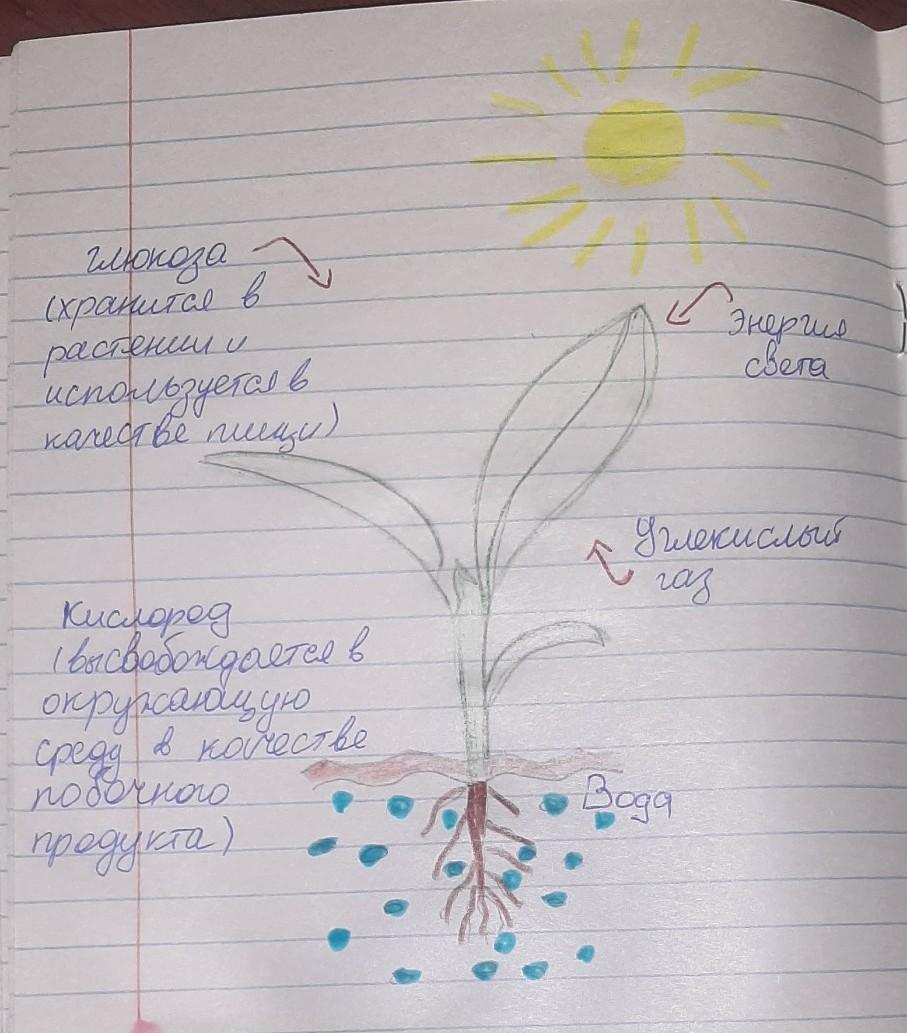 глюкоза
(хранится в
растении и
используется в
качестве пищи)
Энергия
света
Углекислый
газ
Кислород
(высвобождается в
окружающую
среду в качестве
побочного
продукта)
Вода